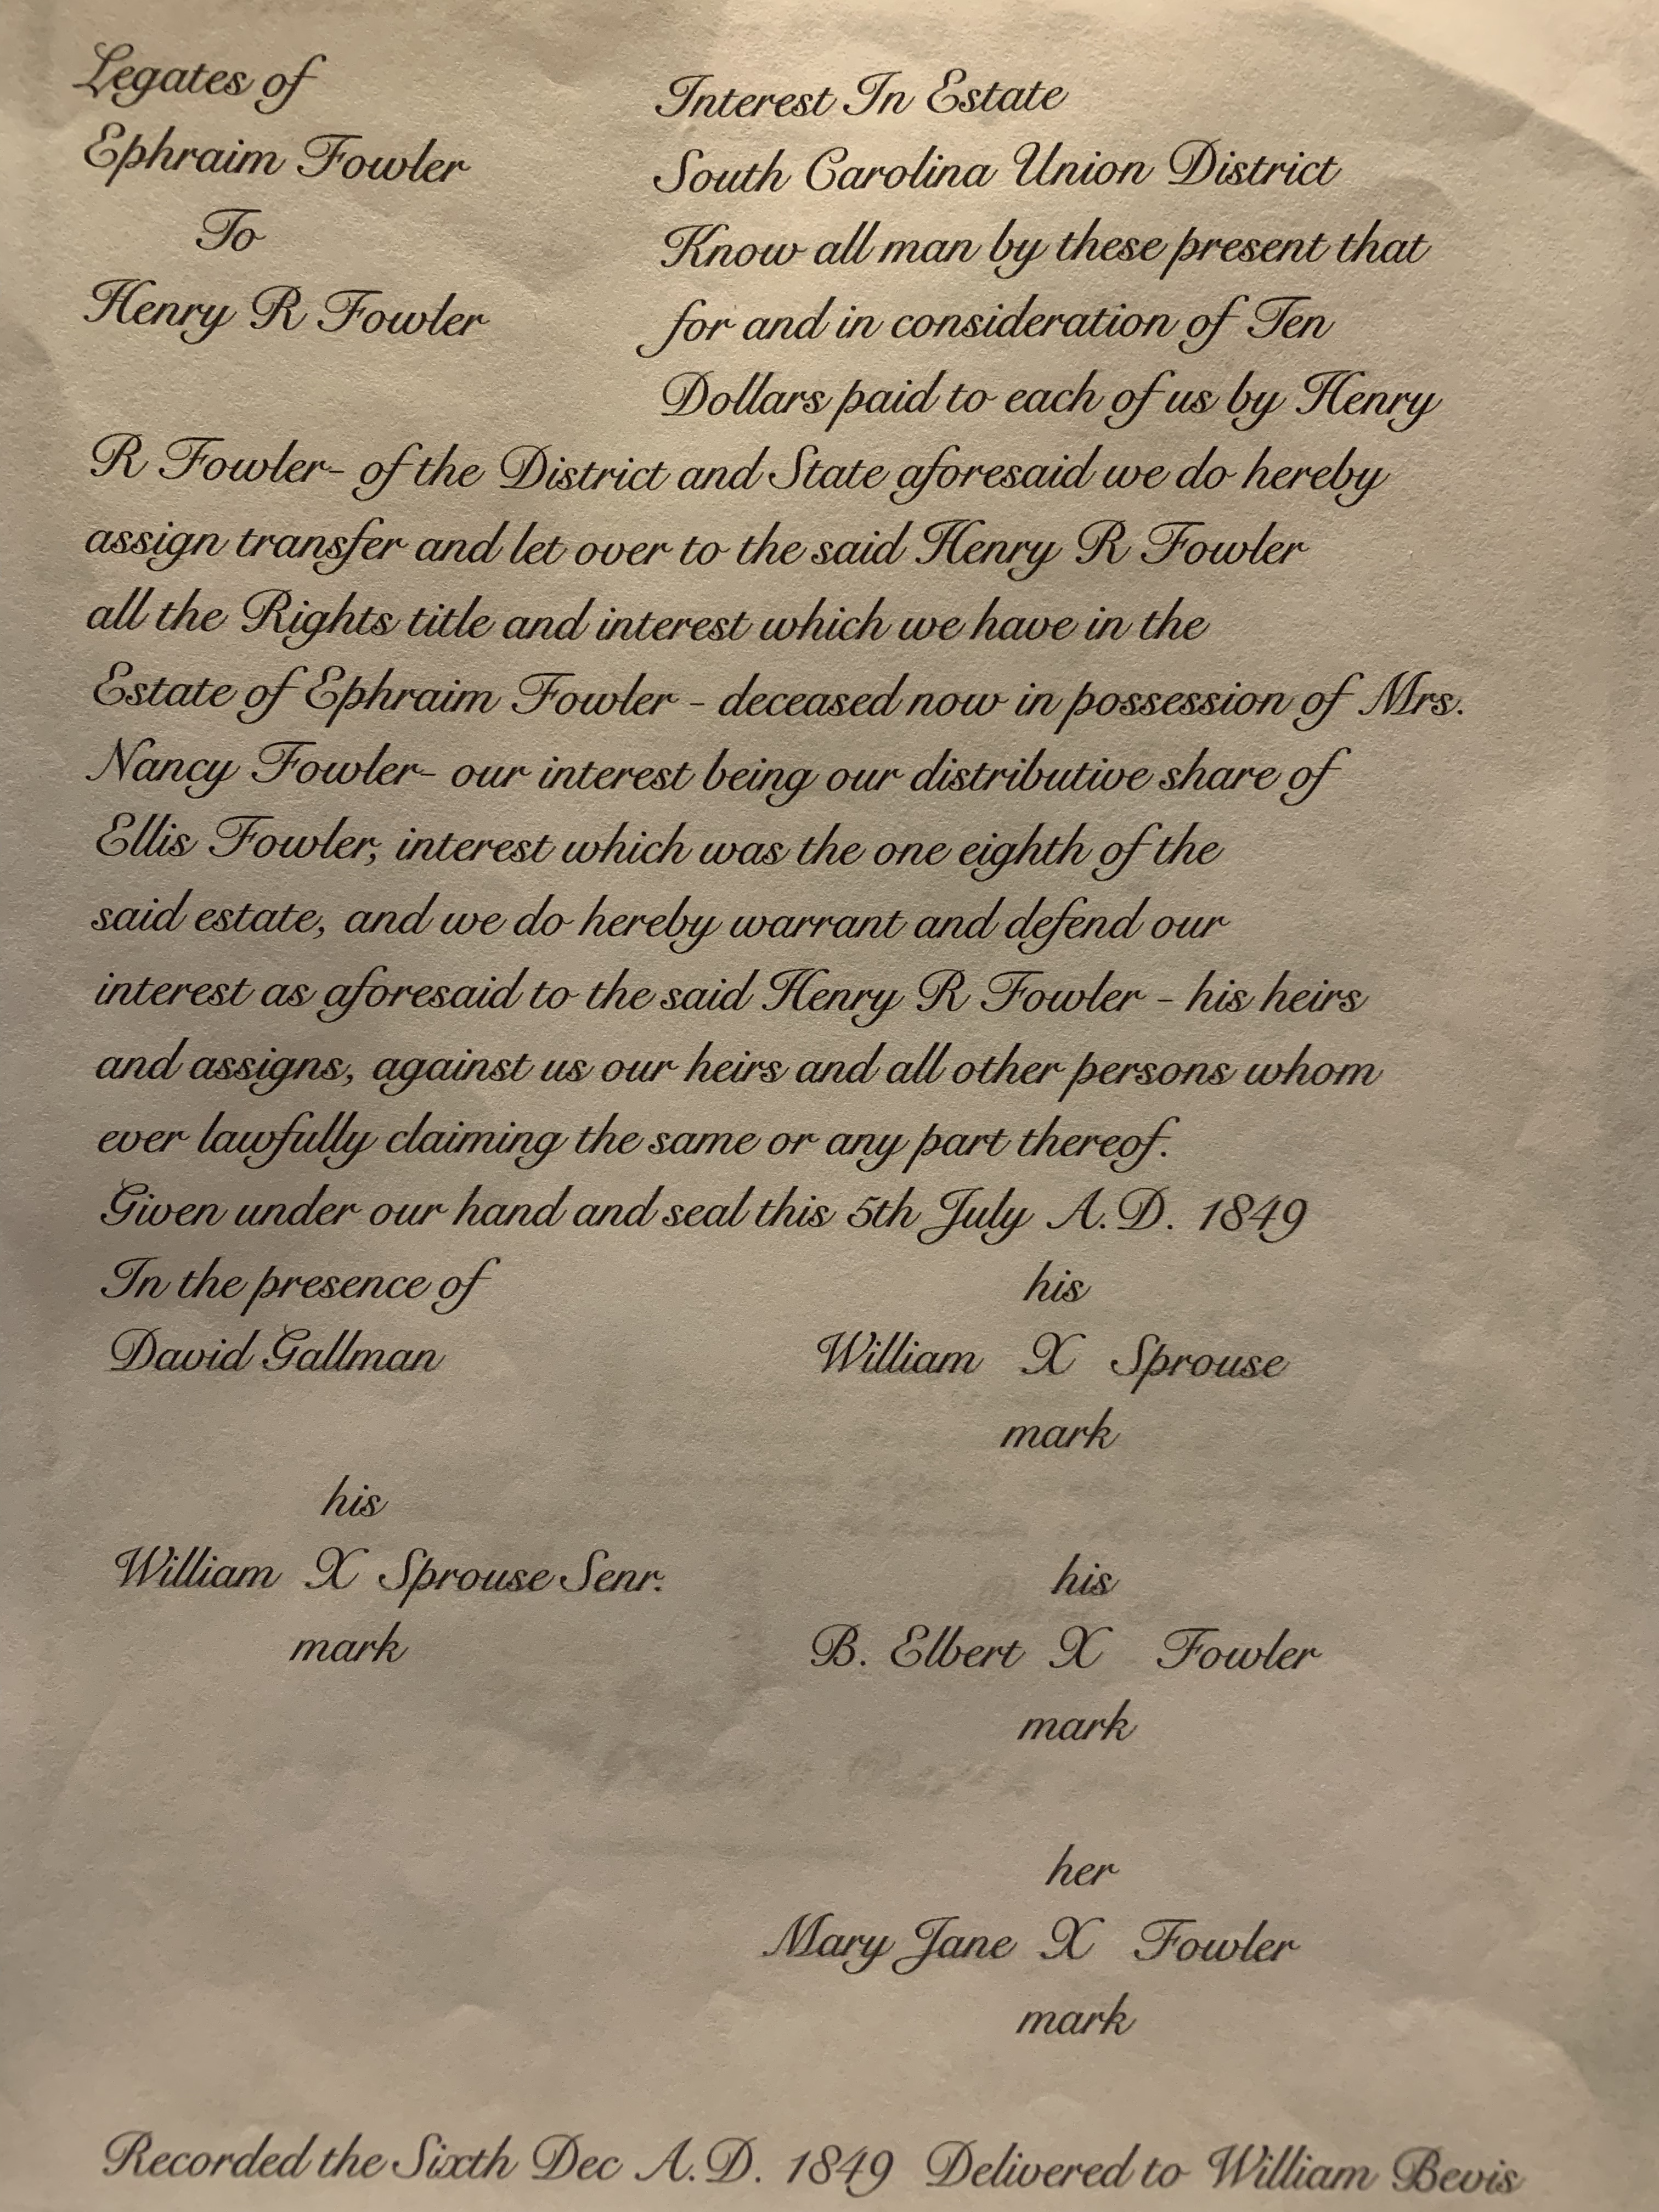 Legates of
Ephraim Fowler
To
Henry R Fowler
Interest In Estate
South Carolina Union District
Know all man by these present that
for and in consideration of Ten
Dollars paid to each of us by Henry
R Fowler- of the District and State aforesaid we do hereby
assign transfer and let over to the said Henry R Fowler
all the Rights title and interest which we have in the
Estate of Ephraim Fowler - deceased now in possession of Mrs.
Nancy Fowler- our interest being our distributive share of
Ellis Fowler, interest which was the one eighth of the
said estate, and we do hereby warrant and defend our
interest as aforesaid to the said Henry R Fowler - his heirs
and assigns, against us our heirs and all other persons whom
ever lawfully claiming the same or any part thereof.
Given under our hand and seal this 5th July A.D. 1849
In the presence of
David Gallman
his
William X Sprouse
mark
his
William X Sprouse Senr.
mark
his
B. Elbert X Fowler
mark
her
Mary Jane X Fowler
mark
Recorded the Sixth Dec A.D. 1849 Delivered to William Bevis